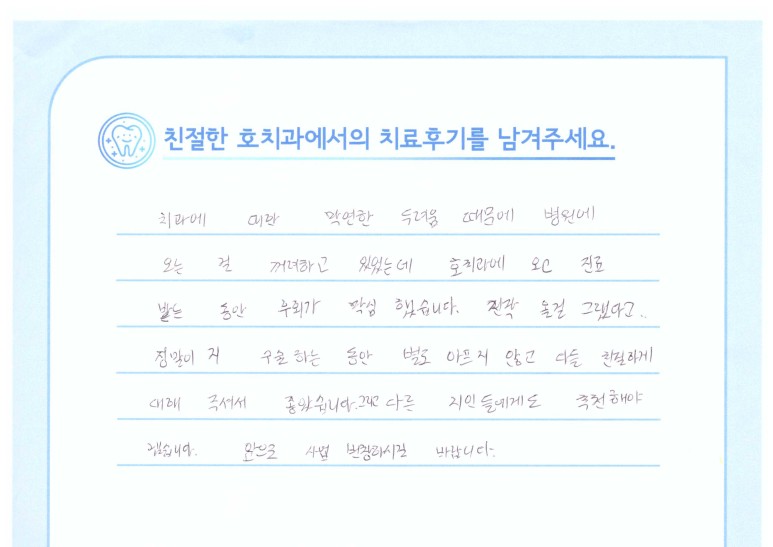 친절한 호치과에서의 치료후기를 남겨주세요.
치과에 대한 막연한 두려움 때문에 병원에
오는 걸 꺼려하고 있었는데 호치과에 오고 진료
받는 동안 후회가 막심 했습니다. 진작 올걸 그랬다고..
정말이지 수술 하는 동안 별로 아프지 않고 다들 친절하게
대해 주셔서 좋았습니다. 그리고 다른 지인들에게도 추천해야
겠습니다. 앞으로 사업 번창하시길 바랍니다.